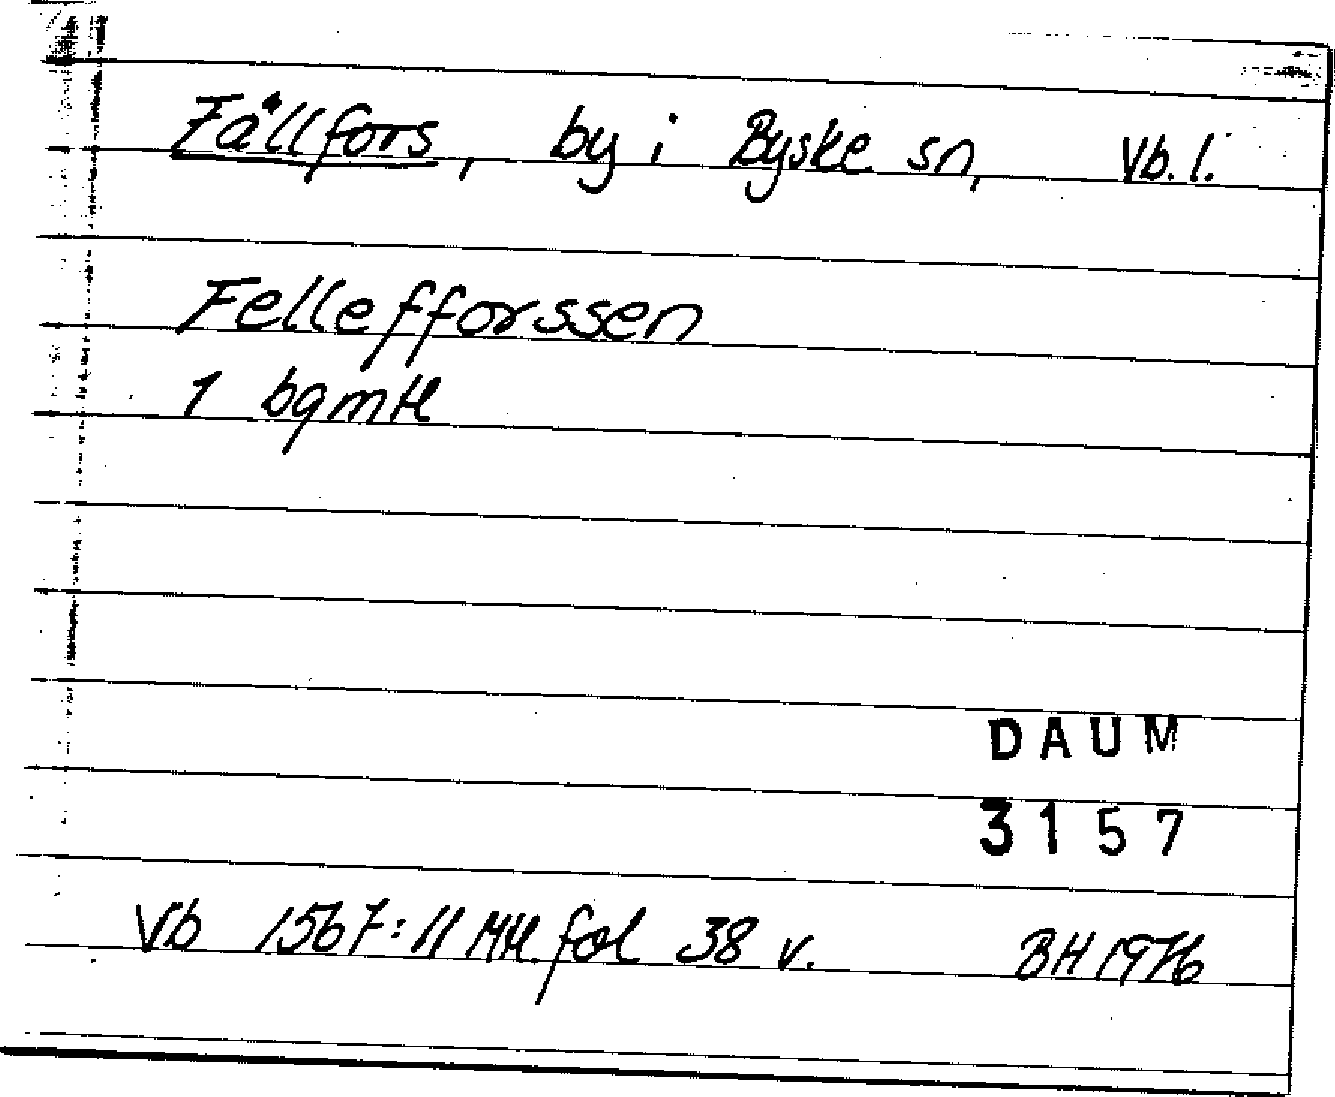 Fällfors, by i Byske sn, Vb. l.
Felleffforssen
1 bgmtl
DAUM
3157
Vb 1567:11 Mtl. fol 38 v. BH 1976